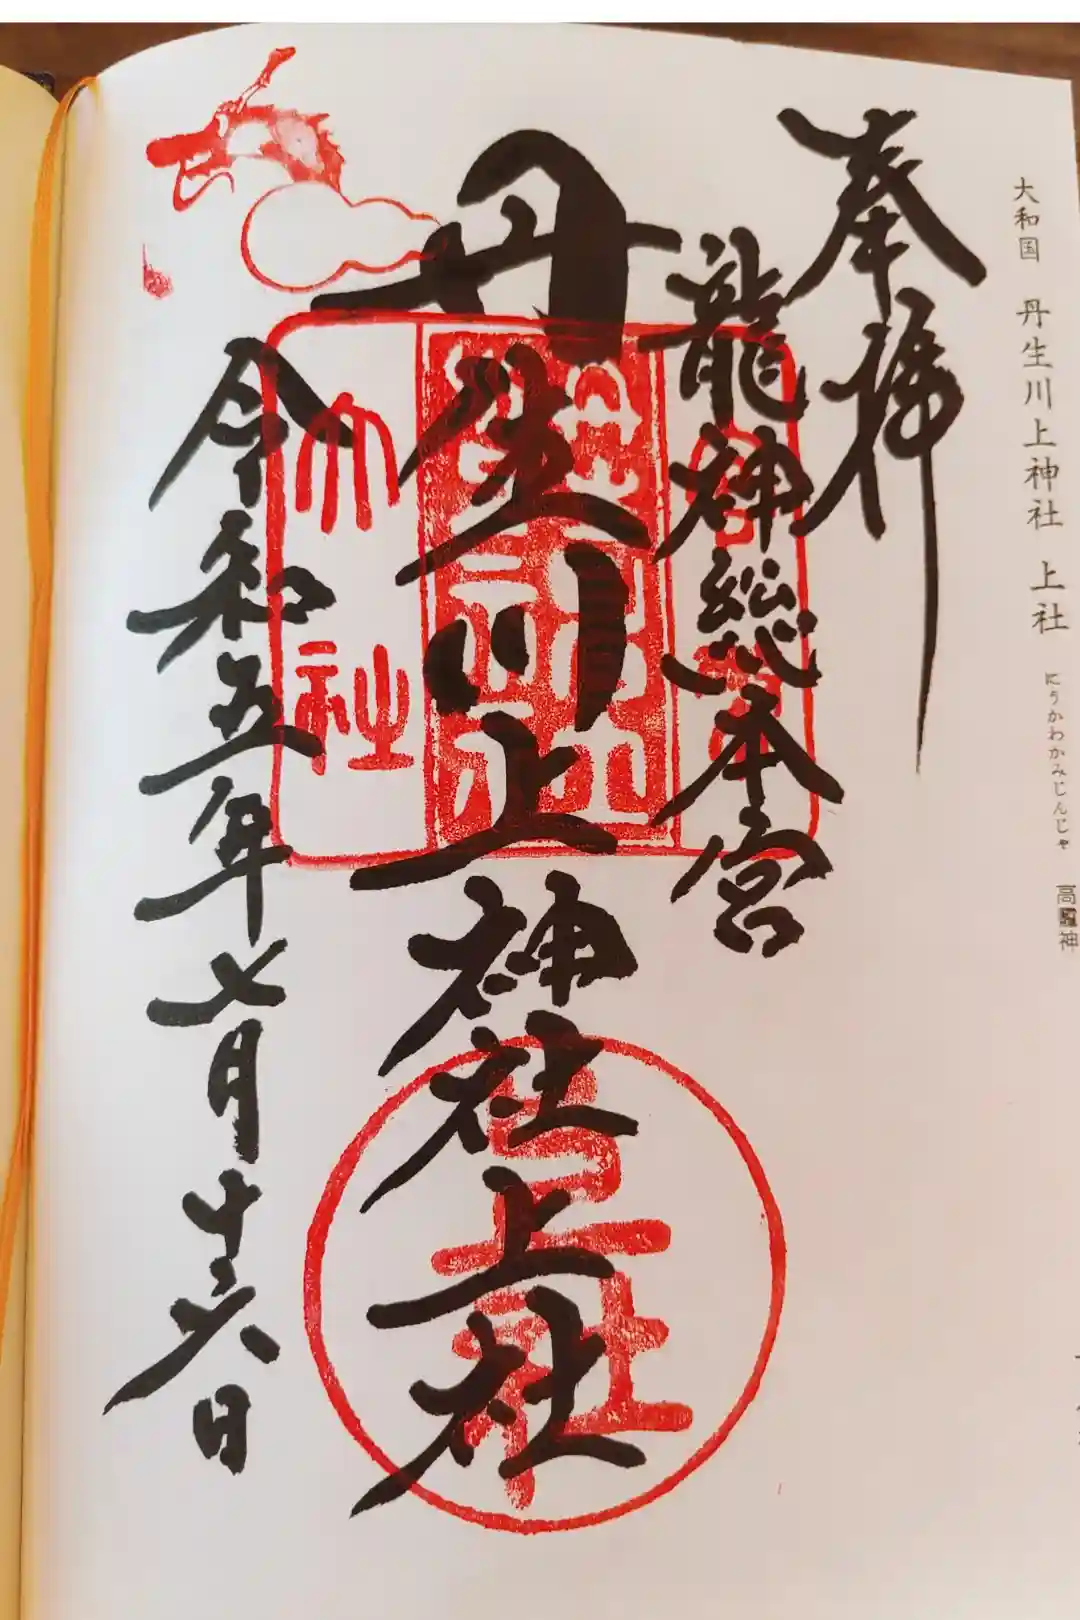 大和国 丹生川上神社 上社 にうかわかみじんじゃ 高龗神
奉拝
龍神総本宮
丹生川上神社上社
令和五年七月十六日
上社